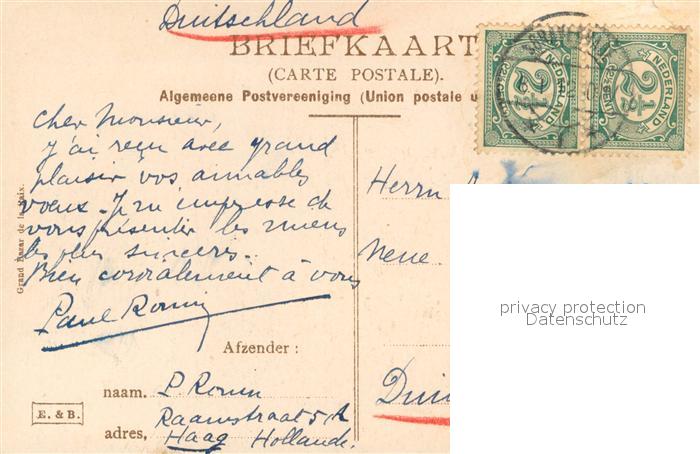 Duitschland
BRIEFKAART
(CARTE POSTALE).
Algemeene Postvereeniging (Union postale u
Cher Monsieur,
J'ai reçu avec grand
plaisir vos aimables
voeux. J m'empresse de
vous présenter les miens
les plus sincères.
Bien cordialement à vous
Paul
Grand Bazar de la Paix.
Afzender:
naam. P.
adres, Raamstraat 5
Haag Hollande.
E. & B.
Herrn
Neue
Dui
NEDERLAND
2½
NEDERLAND
2½
privacy protection
Datenschutz